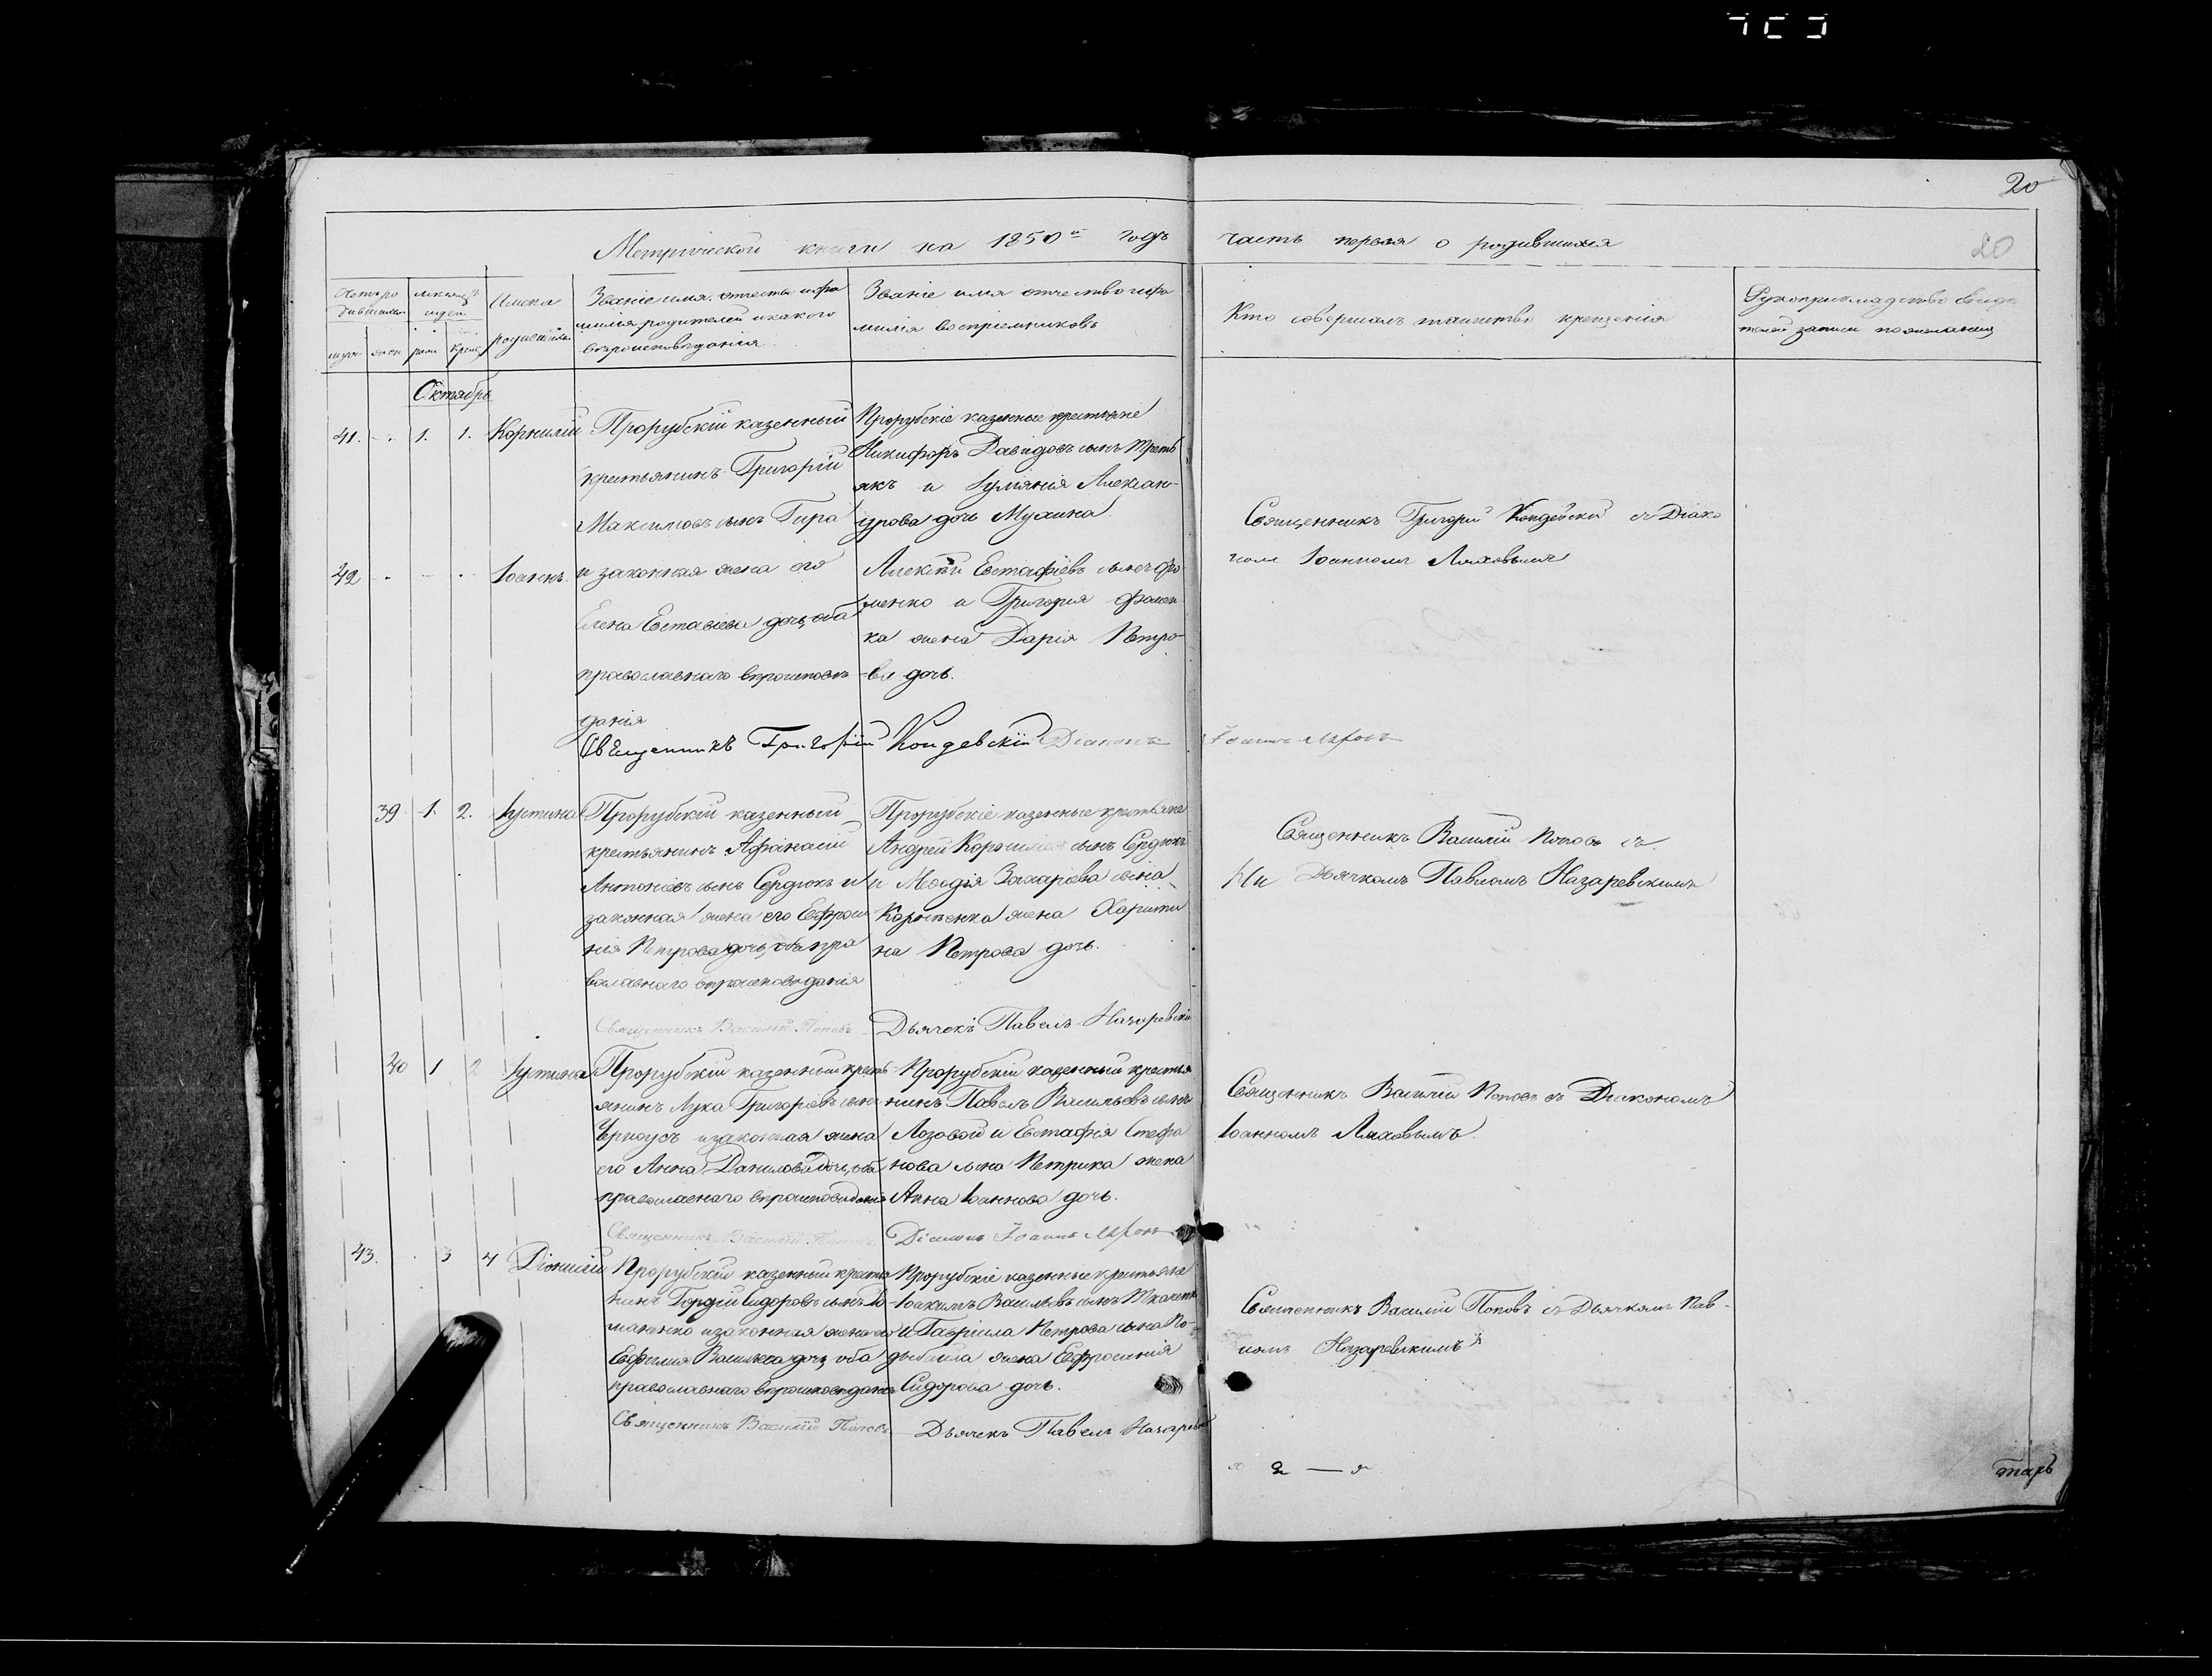 20
Метрической книги на 1850й годъ часть первая о родившихся
20
Счетъ ро
дившихся
мѣсяцъ
и дни
Имена
родившихъ
Званіе имя, отчество и фа
милія родителей и какого
вѣроисповѣданія
Званіе имя отчество и фа
милія воспріемниковъ
Кто совершалъ таинство крещенія
Рукоприкладство свидѣ
телей записи по желанію
муж жен рож крещ
Октябрь
41. 1. 1. Корнилій
Прорубскій казенный
крестьянинъ Григорій
Максимовъ сынъ Гира
и законная жена его
Елена Евстафіева дочь, оба
православнаго вѣроисповѣ
данія
Прорубскіе казенные крестьяне
Никифоръ Давидовъ сынъ Треть
якъ и Алексан
дрова дочь Мухина
42 Іоаннъ
Алексѣй Евстафіевъ сынъ Фо
менко и Григорія Фомен
ка жена Дарія Петро
ва дочь.
Священникъ Григорій Кондевскій съ Діако
номъ Іоанномъ Ляховымъ
Священникъ Григорій Кондевскій Діаконъ Іоаннъ
39 1. 2. Іустина
Прорубскій казенный
крестьянинъ Афанасій
Антоніевъ сынъ Сердюкъ и
законная жена его Ефроси
нія Петрова дочь, оба пра
вославнаго вѣроисповѣданія
Прорубскіе казенные крестьяне
Андрей сынъ Сердюкъ
и Захарова сына
жена Харити
на Петрова дочь.
Священникъ Василій Поповъ съ
Дьячкомъ Павломъ Назаревскимъ
Священникъ Василій Поповъ Дьячекъ Павелъ Назаревскій
40 1 2 Іустина
Прорубскій казенный кресть
янинъ Лука Григоревъ сынъ
Черноусъ и законная жена
его Анна Данилова дочь, оба
православнаго вѣроисповѣданія
Прорубскій казенный крестья
нинъ Павелъ Васильевъ сынъ
Лозовой и Евстафія Стефа
нова сына Петрика жена
Анна Іоаннова дочь.
Священникъ Василій Поповъ съ Діакономъ
Іоанномъ Ляховымъ.
Священникъ Василій Поповъ Діаконъ Іоаннъ
43. 3 4 Діонисій
Прорубскій казенный крестья
нинъ Гордій Сидоровъ сынъ До
маненко и законная жена его
Евфимія Васильева дочь, оба
православнаго вѣроисповѣданія
Прорубскіе казенные крестьяне
Іоакимъ Васильевъ сынъ
и Гавріила Петрова сына По
жена Ефросинія
Сидорова дочь.
Священникъ Василій Поповъ съ Дьячкомъ Пав
ломъ Назаревскимъ
Священникъ Василій Поповъ Дьячекъ Павелъ Назаревскій
тарь